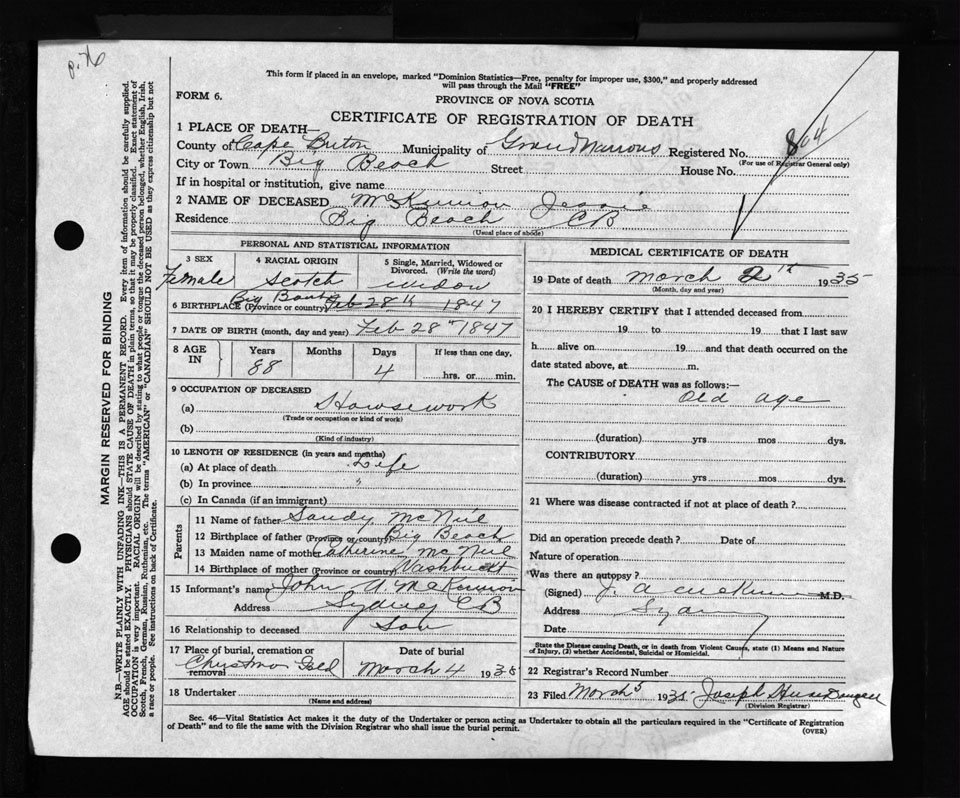 p. 76
This form if placed in an envelope, marked "Dominion Statistics—Free, penalty for improper use, $300," and properly addressed
will pass through the Mail "FREE"
FORM 6.
PROVINCE OF NOVA SCOTIA
CERTIFICATE OF REGISTRATION OF DEATH
1 PLACE OF DEATH—
County of Cape Breton Municipality of Grand Narrows Registered No. 804
(For use of Registrar General only)
City or Town Big Beach Street House No.
If in hospital or institution, give name
2 NAME OF DECEASED McKinnon Jessie
Residence Big Beach CB
(Usual place of abode)
PERSONAL AND STATISTICAL INFORMATION
3 SEX 4 RACIAL ORIGIN 5 Single, Married, Widowed or Divorced. (Write the word)
Female Scotch widow
6 BIRTHPLACE (Province or country) Big Feb 28th 1847
7 DATE OF BIRTH (month, day and year) Feb 28th 1847
8 AGE IN Years Months Days If less than one day,
88 4 hrs. or min.
9 OCCUPATION OF DECEASED
(a) Housework
(Trade or occupation or kind of work)
(b)
(Kind of industry)
10 LENGTH OF RESIDENCE (in years and months)
(a) At place of death Life
(b) In province "
(c) In Canada (if an immigrant)
Parents
11 Name of father Sandy McNeil
12 Birthplace of father (Province or country) Big Beach
13 Maiden name of mother Catherine McNeil
14 Birthplace of mother (Province or country) Washbuckt
15 Informant's name John A McKinnon
Address Sydney CB
16 Relationship to deceased Son
17 Place of burial, cremation or removal Date of burial,
Christmas Isld March 4 1935
18 Undertaker
(Name and address)
MEDICAL CERTIFICATE OF DEATH
19 Date of death March 1935
(Month, day and year)
20 I HEREBY CERTIFY that I attended deceased from
19 to 19 that I last saw
h alive on 19 and that death occurred on the
date stated above, at m.
The CAUSE of DEATH was as follows:—
Old age
(duration) yrs mos dys.
CONTRIBUTORY
(duration) yrs mos dys.
21 Where was disease contracted if not at place of death?
Did an operation precede death? Date of
Nature of operation
Was there an autopsy?
(Signed) J. A McKinnon M.D.
Address Sydney
Date
State the Disease causing Death, or in death from Violent Causes, state (1) Means and Nature
of Injury, (2) whether Accidental, Suicidal or Homicidal.
22 Registrar's Record Number
23 Filed March 5 1935 Joseph
(Division Registrar)
Sec. 46—Vital Statistics Act makes it the duty of the Undertaker or person acting as Undertaker to obtain all the particulars required in the "Certificate of Registration
of Death" and to file the same with the Division Registrar who shall issue the burial permit.
(OVER)
MARGIN RESERVED FOR BINDING
N.B.—WRITE PLAINLY WITH UNFADING INK—THIS IS A PERMANENT RECORD. Every item of information should be carefully supplied.
AGE should be stated EXACTLY. PHYSICIANS should STATE CAUSE OF DEATH in plain terms, so that it may be properly classified. Exact statement of
OCCUPATION is very important. RACIAL ORIGIN will be described by stating to what people or tongue the deceased person belonged, whether English, Irish,
Scotch, French, German, Russian, Ruthenian, etc. The terms "AMERICAN" or "CANADIAN" SHOULD NOT BE USED as they express citizenship but not
a race or people. See instructions on back of Certificate.